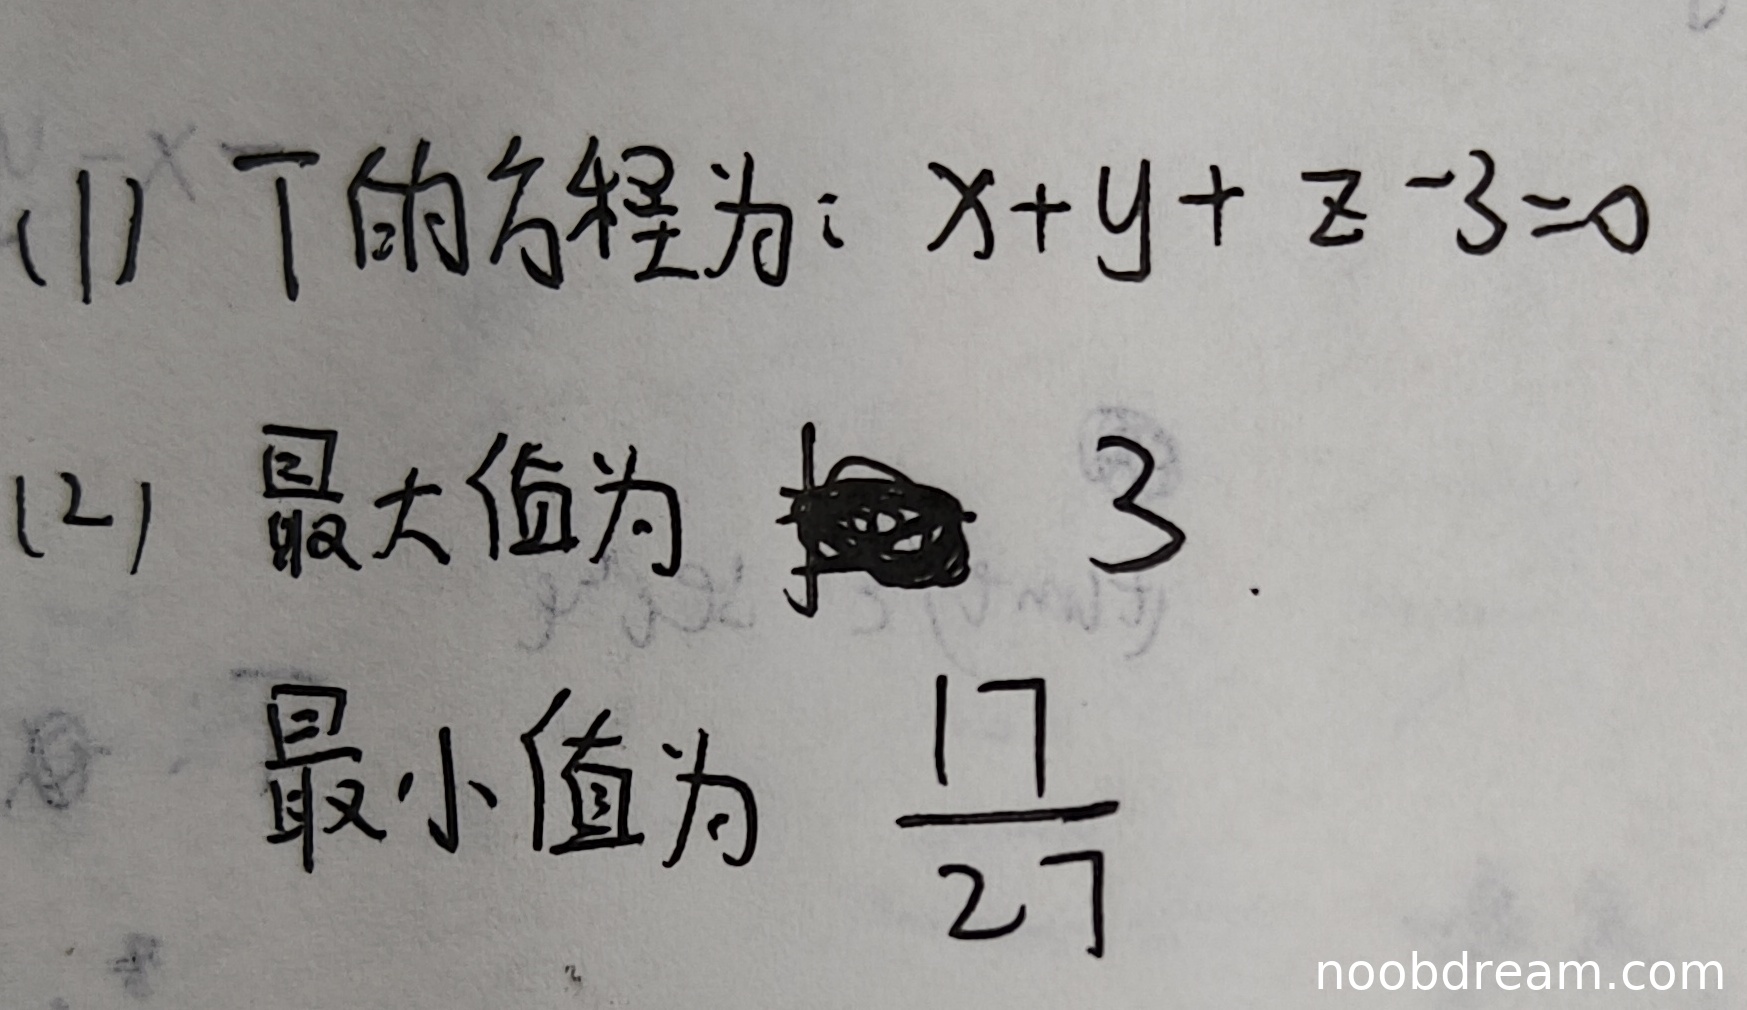 (1) T的方程为: x+y+z-3=0
(2) 最大值为 3.
最小值为 17/27
noobdream.com